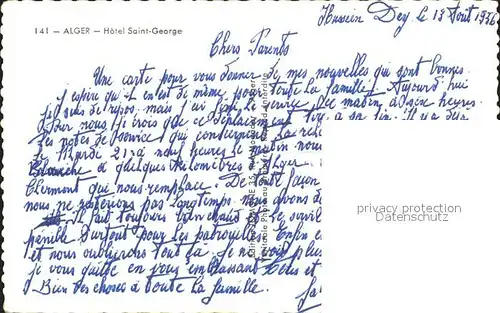 141 — ALGER — Hôtel Saint-George
Hussein Dey le 13 Août 195
Chers Parents
Une carte pour vous donner de mes nouvelles qui sont bonnes.
J'espère qu'il en est de même pour toute la famille. Aujourd'hui
je suis de repos mais j'ai fait le service ce matin à six heures.
Pour nous je crois que ce déplacement
les notes de service qui concernent la
le Mardi 21 à neuf heures le matin nous
Blanche à quelques kilomètres d'Alger
Clermont qui nous remplace. De toute façon
nous ne resterons pas longtemps nous avons
Il fait toujours bien chaud le
pénible surtout pour les patrouilles. Enfin
et nous oublierons tout ça. Je ne vois plus
je vous quitte en vous embrassant tous et
Bien des choses à toute la famille.
privacy protection
Datenschutz